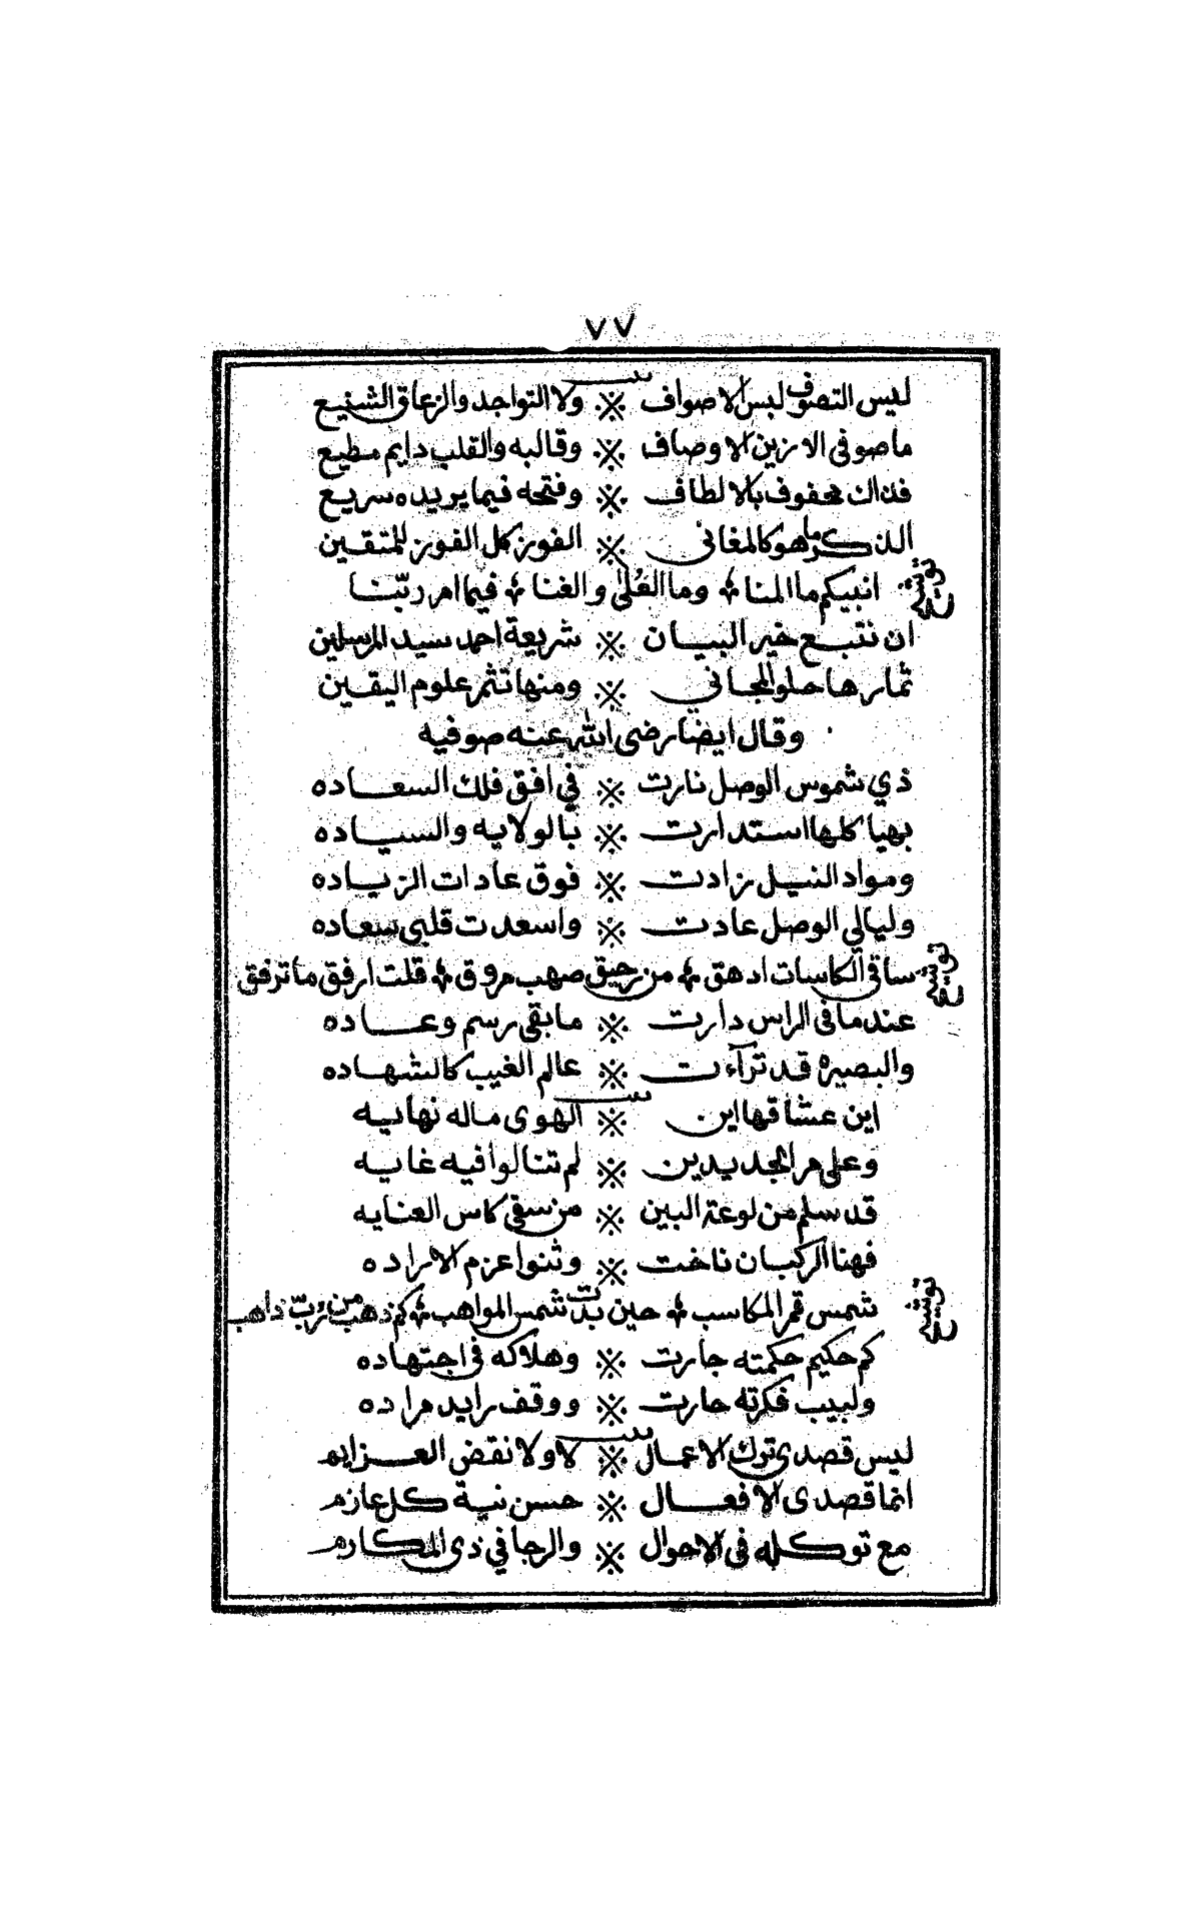 ٧٧
بيت
ليس التصوف لبس الاصواف ※ ولا التواجد والزعاق الشنيع
ما صوفي الا من زين الاوصاف ※ وقالبه والقلب دايم مطيع
فذاك محفوف بالالطاف ※ وفتحه فيما يريده سريع
الذكر ما هو كالمغاني ※ الفوز كل الفوز للمتقين
توشيح
انبيكم ما المنا ؞ وما العُلىٰ والغنا ؞ فيما امر ربّنا
ان نتبع خير البيان ※ شريعة احمد سيد المرسلين
ثمارها حلو المجاني ※ ومنها تثمر علوم اليقين
وقال ايضا رضي الله عنه صوفيه
ذي شموس الوصل نارت ※ في افق فلك السعاده
بهيا كلها استدارت ※ بالولايه والسياده
ومواد النيل زادت ※ فوق عادات الزياده
وليالي الوصل عادت ※ واسعدت قلبي سعاده
توشيح
ساقي الكاسات ادهق ؞ من رحيق صهب مروق ؞ قلت ارفق ما ترفق
عندما في الراس دارت ※ ما بقي رسم وعاده
والبصيره قد ترآءت ※ عالم الغيب كالشهاده
بيت
اين عشاقها اين ※ الهوى ماله نهايه
وعلى مر الجديدين ※ لم تنالوا فيه غايه
قد سلم من لوعة البين ※ من سقي كاس العنايه
فهنا الركبان ناخت ※ وثنوا عزم الاراده
توشيح
شمس قمر المكاسب ؞ حين بدت شمس المواهب ؞ كم ذهب من رُبّ ذاهب
كم حكيم حكمته جارت ※ وهلاكه في اجتهاده
ولبيب فكرته حارت ※ ووقف رايد مراده
بيت
ليس قصدي ترك الاعمال ※ لا ولا نقض العزايم
انما قصدي الافعال ※ حسن نية كل عازم
مع توكله في الاحوال ※ والرجا في ذي المكارم